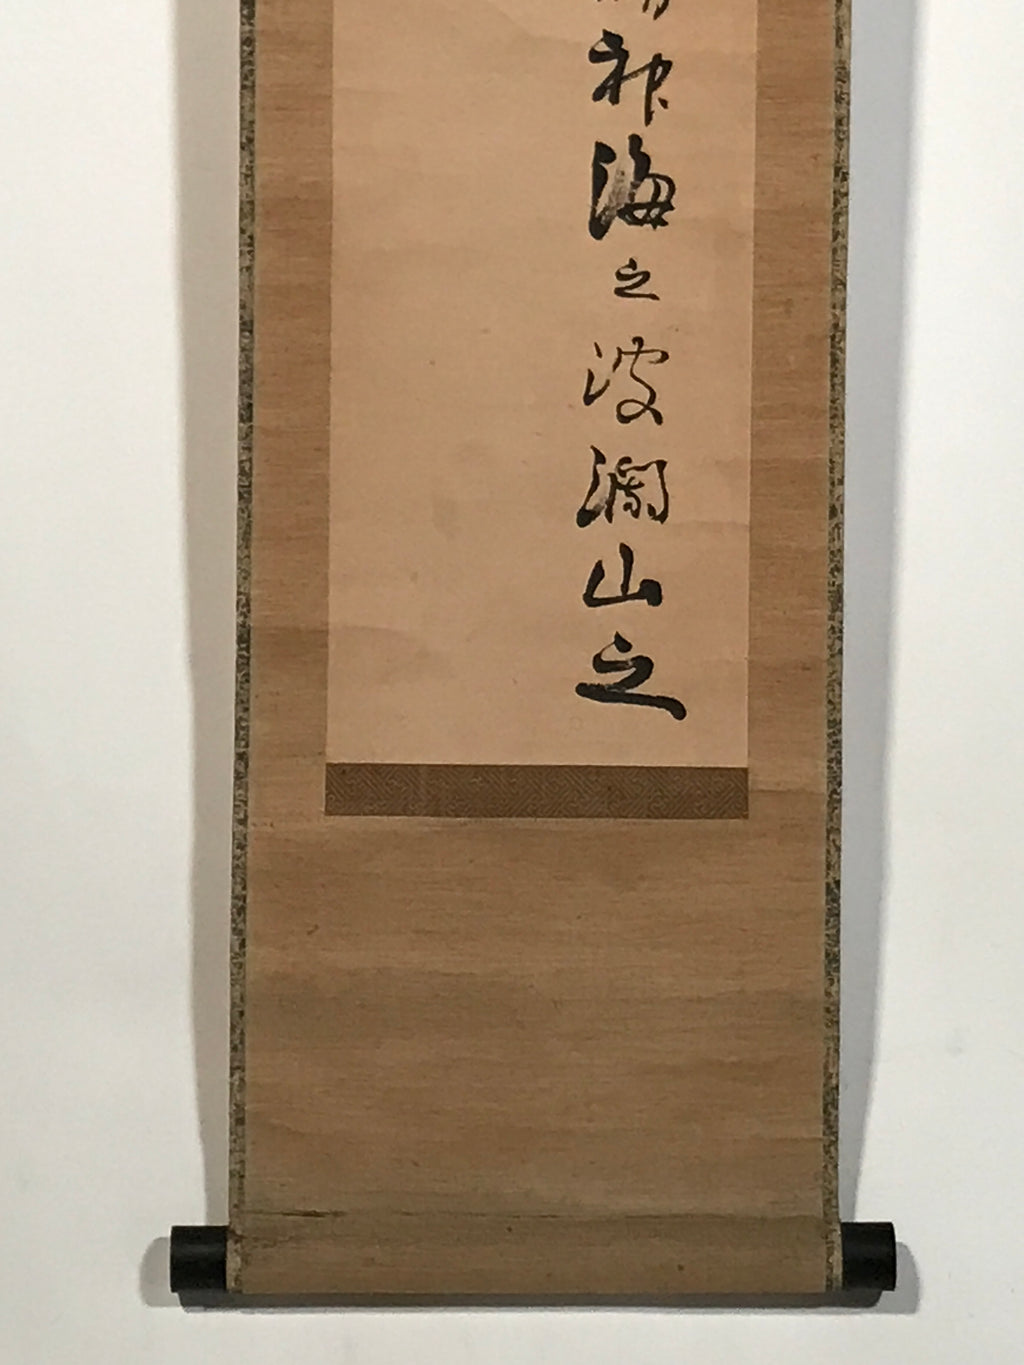 神海之波瀾山之